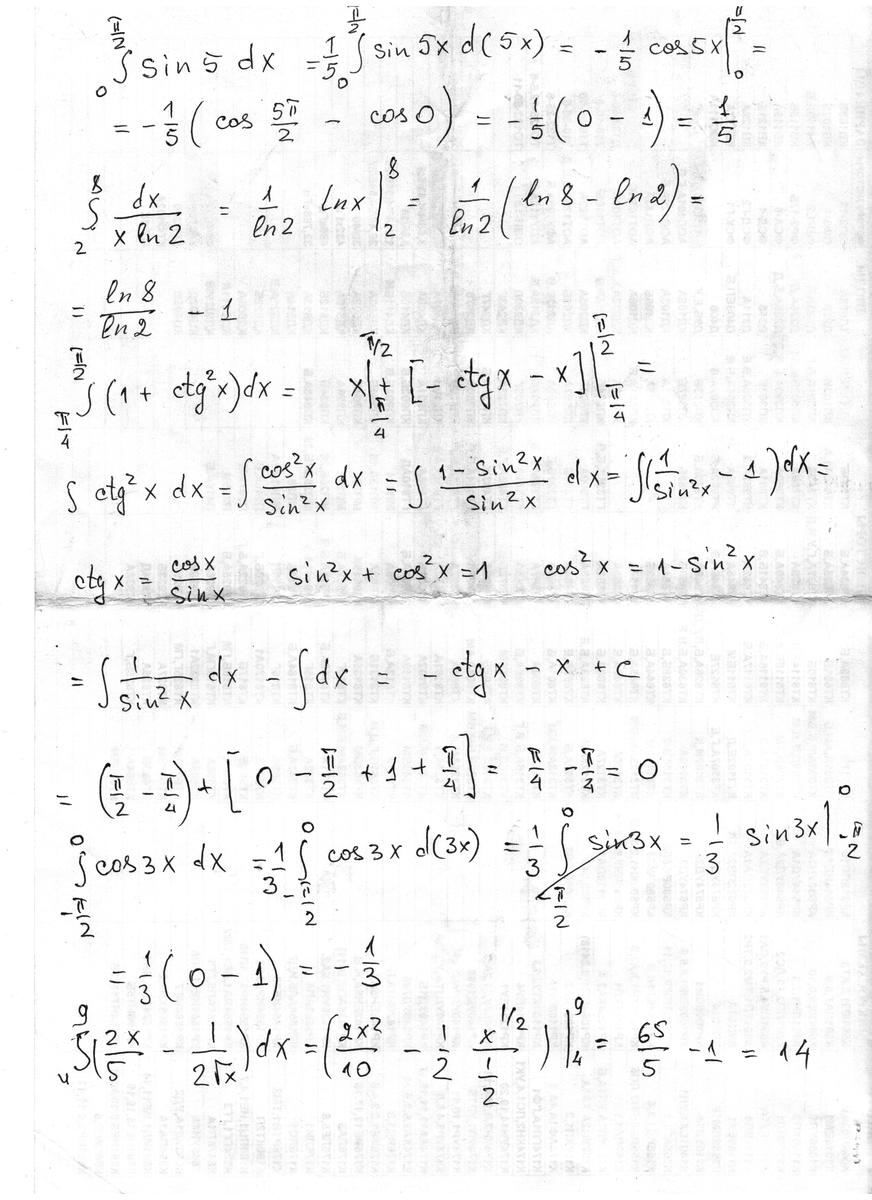 ∫₀^{π/2} sin 5 dx = 1/5 ∫₀^{π/2} sin 5x d(5x) = - 1/5 cos 5x |₀^{π/2} =
= - 1/5 ( cos 5π/2 - cos 0 ) = - 1/5 ( 0 - 1 ) = 1/5
∫₂^8 dx / (x ln 2) = 1/ln 2 ln x |₂^8 = 1/ln 2 ( ln 8 - ln 2 ) =
= ln 8 / ln 2 - 1
∫_{π/4}^{π/2} (1 + ctg²x) dx = x |_{π/4}^{π/2} + [ - ctg x - x ] |_{π/4}^{π/2} =
∫ ctg² x dx = ∫ cos²x / sin²x dx = ∫ (1 - sin²x) / sin²x dx = ∫ ( 1/sin²x - 1 ) dx =
ctg x = cos x / sin x sin²x + cos²x = 1 cos²x = 1 - sin²x
= ∫ 1/sin²x dx - ∫ dx = - ctg x - x + c
= ( π/2 - π/4 ) + [ 0 - π/2 + 1 + π/4 ] = π/4 - π/4 = 0
∫_{-π/2}^0 cos 3x dx = 1/3 ∫_{-π/2}^0 cos 3x d(3x) = 1/3 ∫_{-π/2}^0 sin 3x = 1/3 sin 3x |_{-π/2}^0
= 1/3 ( 0 - 1 ) = - 1/3
∫₄^9 ( 2x/5 - 1/(2√x) ) dx = ( 2x²/10 - 1/2 x^{1/2} / (1/2) ) |₄^9 = 65/5 - 1 = 14